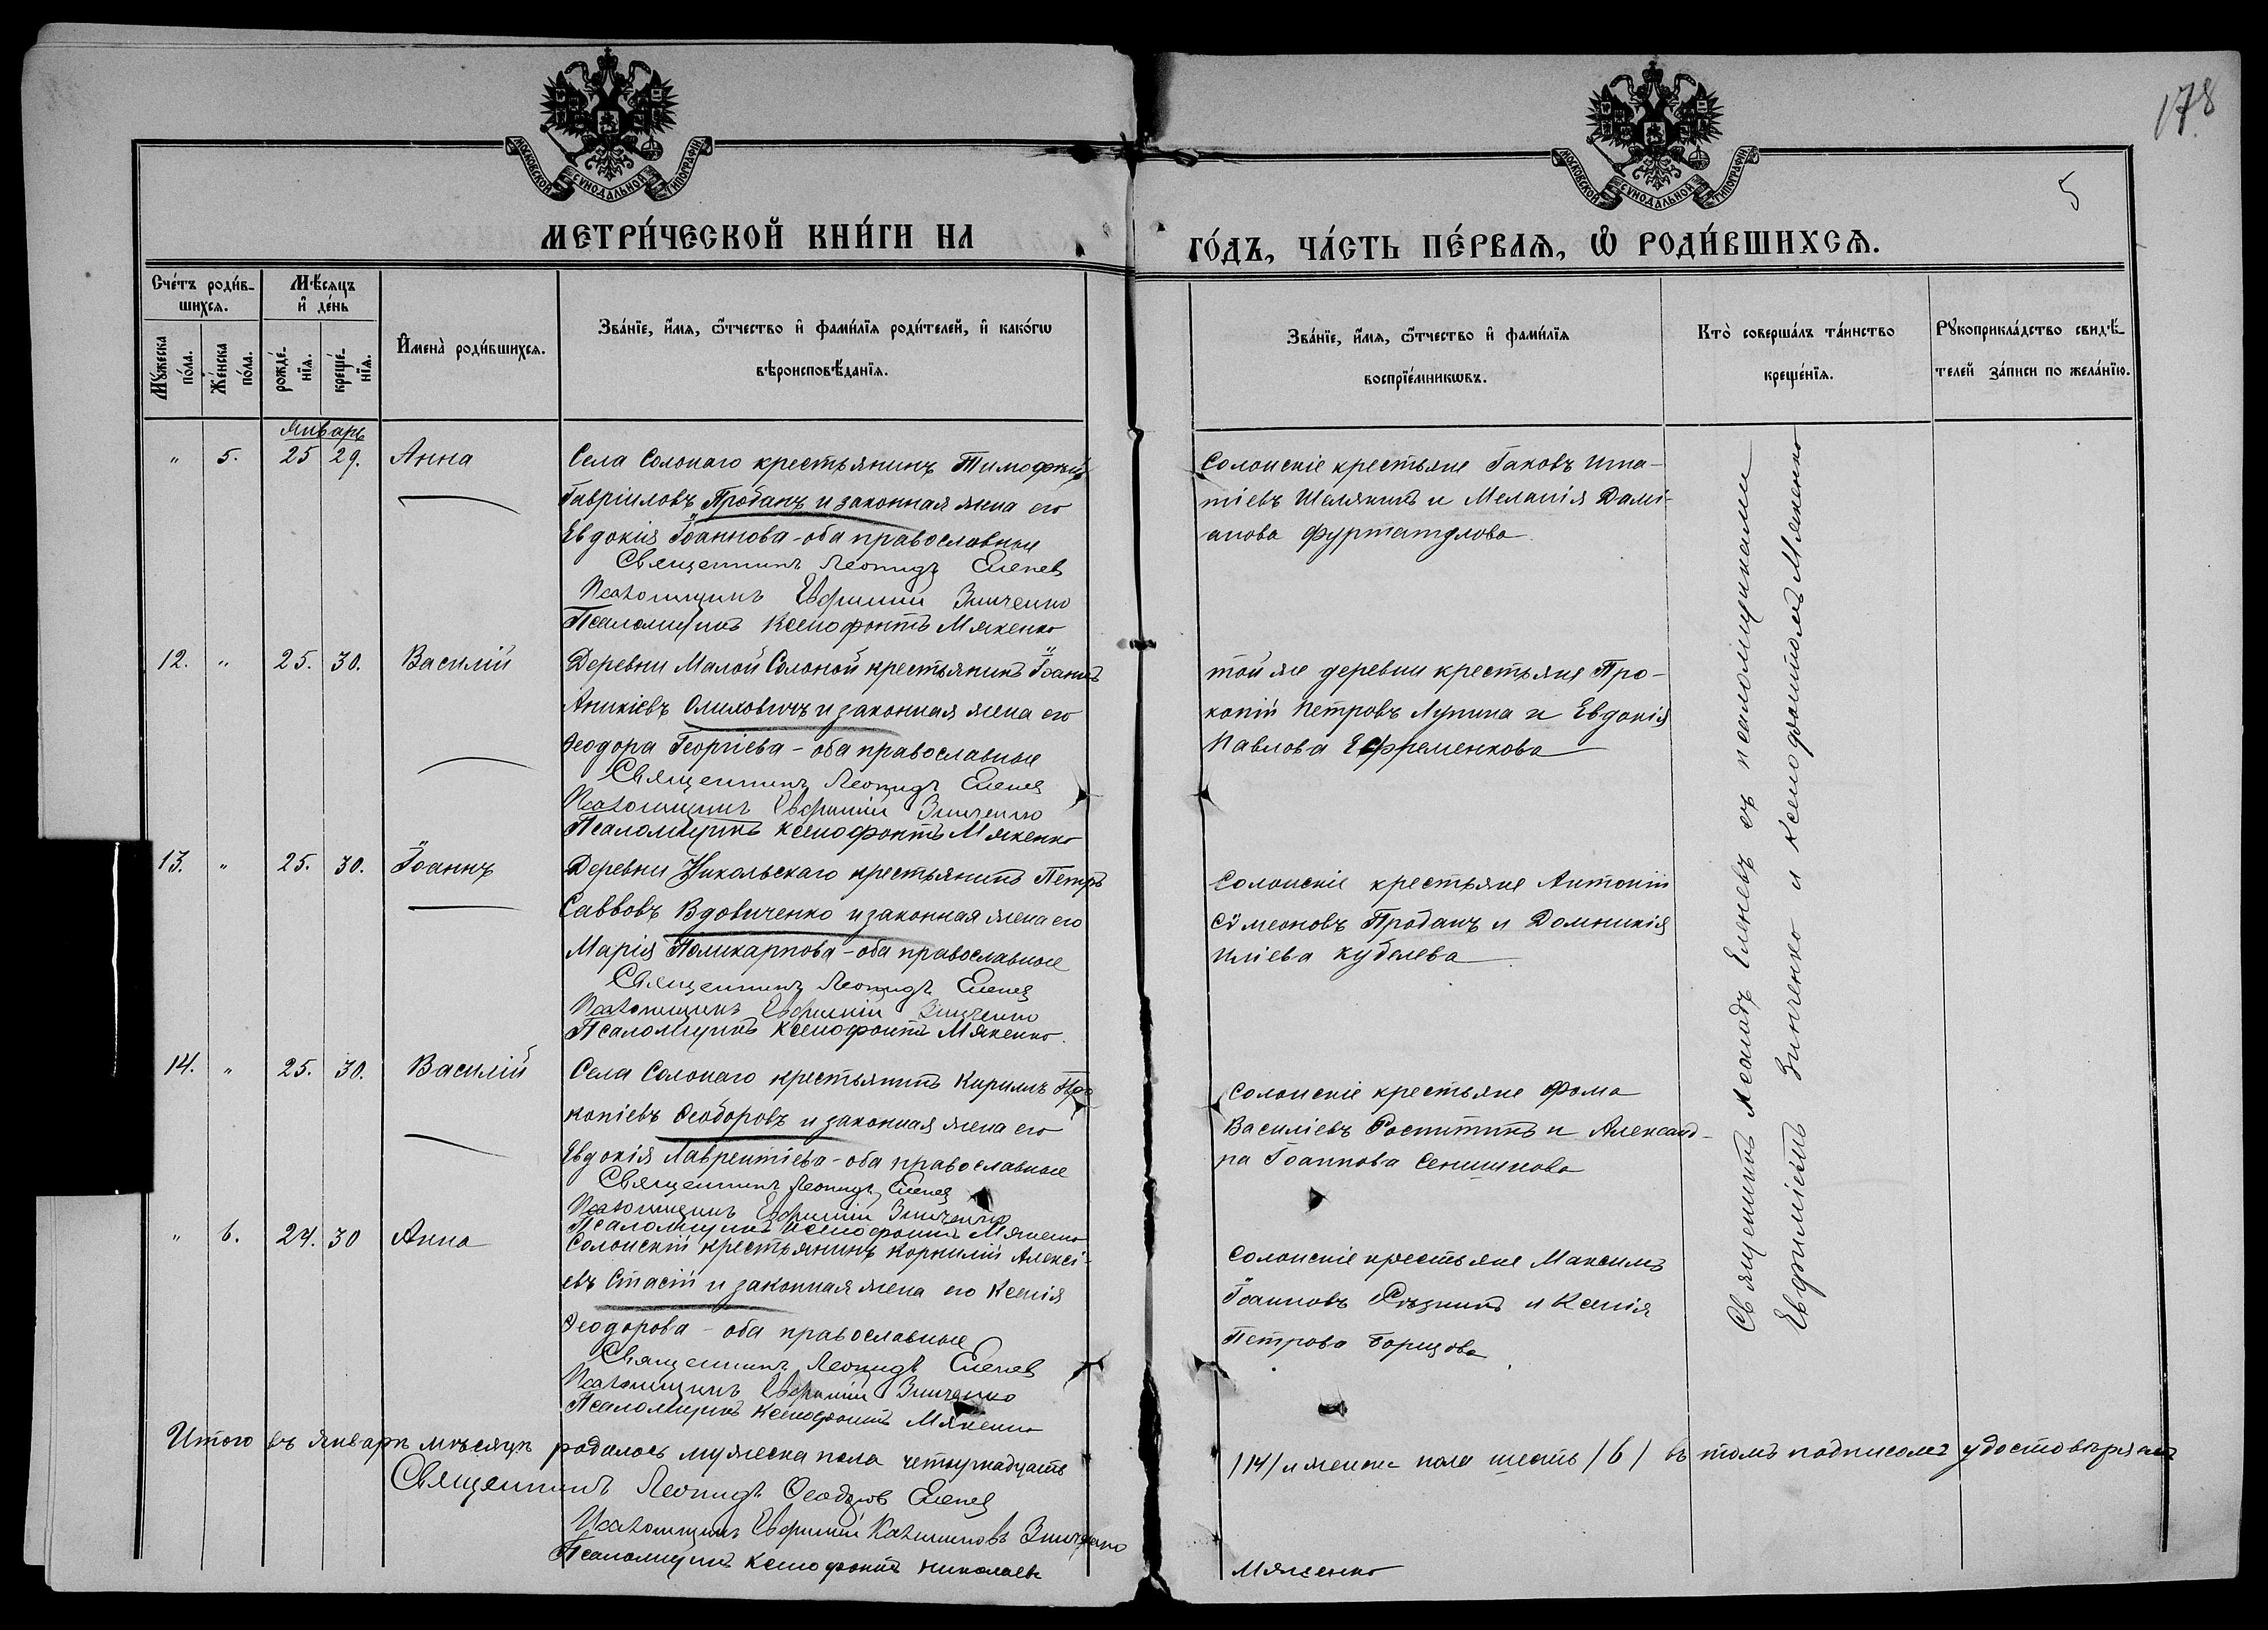 178
5
МОСКОВСКОЙ СѴНОДАЛЬНОЙ ТИПОГРАФІИ
МОСКОВСКОЙ СѴНОДАЛЬНОЙ ТИПОГРАФІИ
МЕТРИ́ЧЕСКОЙ КНИ́ГИ НА
ГО́ДЪ, ЧА́СТЬ ПЕ́РВАѦ, Ѽ РОДИ́ВШИХСѦ.
Сче́тъ роди́в-
шихсѧ.
Мꙋ́жеска по́ла.
Же́нска по́ла.
Мѣ́сѧцъ
и҆ де́нь
рожде́-
нїѧ.
креще́-
нїѧ.
И҆мена̀ роди́вшихсѧ.
Зва́нїе, и҆́мѧ, ѻ҆́тчество и҆ фами́лїѧ роди́телей, и҆ како́гѡ
вѣроисповѣ́данїѧ.
Зва́нїе, и҆́мѧ, ѻ҆́тчество и҆ фами́лїѧ
воспрїе́мникѡвъ.
Кто̀ соверша́лъ та́инство
креще́нїѧ.
Рꙋкоприкла́дство свидѣ́-
телей за́писи по жела́нїю.
январь
" 5. 25 29. Анна
Села Солонаго крестьянинъ Тимофей
Гавріиловъ Проданъ и законная жена его
Евдокія Іоаннова - оба православные
Священникъ Леонидъ Еленев
Псаломщикъ Евфимій Зинченко
Псаломщикъ Ксенофонтъ Мякенко
Солонскіе крестьяне Іаковъ Ипа-
тіевъ Шелякинъ и Меланія Дамі-
анова
12. " 25. 30. Василій
Деревни Малой Солоной крестьянинъ Іоаннъ
Аникіевъ Омиловичъ и законная жена его
Ѳеодора Георгіева - оба православные
Священникъ Леонидъ Еленев
Псаломщикъ Евфимій Зинченко
Псаломщикъ Ксенофонтъ Мякенко
той же деревни крестьяне Про-
копій Петровъ Лупина и Евдокія
Павлова Ефременкова
13. " 25. 30. Іоаннъ
Деревни Никольскаго крестьянинъ Петръ
Саввовъ Вдовиченко и законная жена его
Марія Поликарпова - оба православные
Священникъ Леонидъ Еленев
Псаломщикъ Евфимій Зинченко
Псаломщикъ Ксенофонтъ Мякенко.
Солонскіе крестьяне Антоній
Сѵмеоновъ Проданъ и Домникія
Иліева Кубелева
14. " 25. 30. Василій
Села Солонаго крестьянинъ Кириллъ Про
копіевъ Ѳеодоровъ и законная жена его
Евдокія Лаврентіева - оба православные
Священникъ Леонидъ Еленев
Псаломщикъ Евфимій Зинченко
Псаломщикъ Ксенофонтъ Мякенко
Солонскіе крестьяне Фома
Василіевъ и Александ-
ра Іоаннова
" 6. 24. 30 Анна
Солонскій крестьянинъ Корнилій Алексі-
евъ Стасій и законная жена его Ксенія
Ѳеодорова - оба православные
Священникъ Леонидъ Еленев
Псаломщикъ Евфимій Зинченко
Псаломщикъ Ксенофонтъ Мякенко
Солонскіе крестьяне Максимъ
Іоанновъ Рѣзникъ и Ксенія
Петрова Борщова
Священникъ Леонидъ Еленевъ съ псаломщиками
Евфиміемъ Зинченко и Ксенофонтомъ Мякенко
Итого въ январѣ мѣсяцѣ родилось мужеска пола четырнадцать
/14/ и женска пола шесть /6/ въ томъ подписомъ удостовѣряемъ
Священникъ Леонидъ Ѳеодоров Еленев
Псаломщикъ Евфимій Зинченко
Псаломщикъ Ксенофонтъ Николаевъ
Мякенко